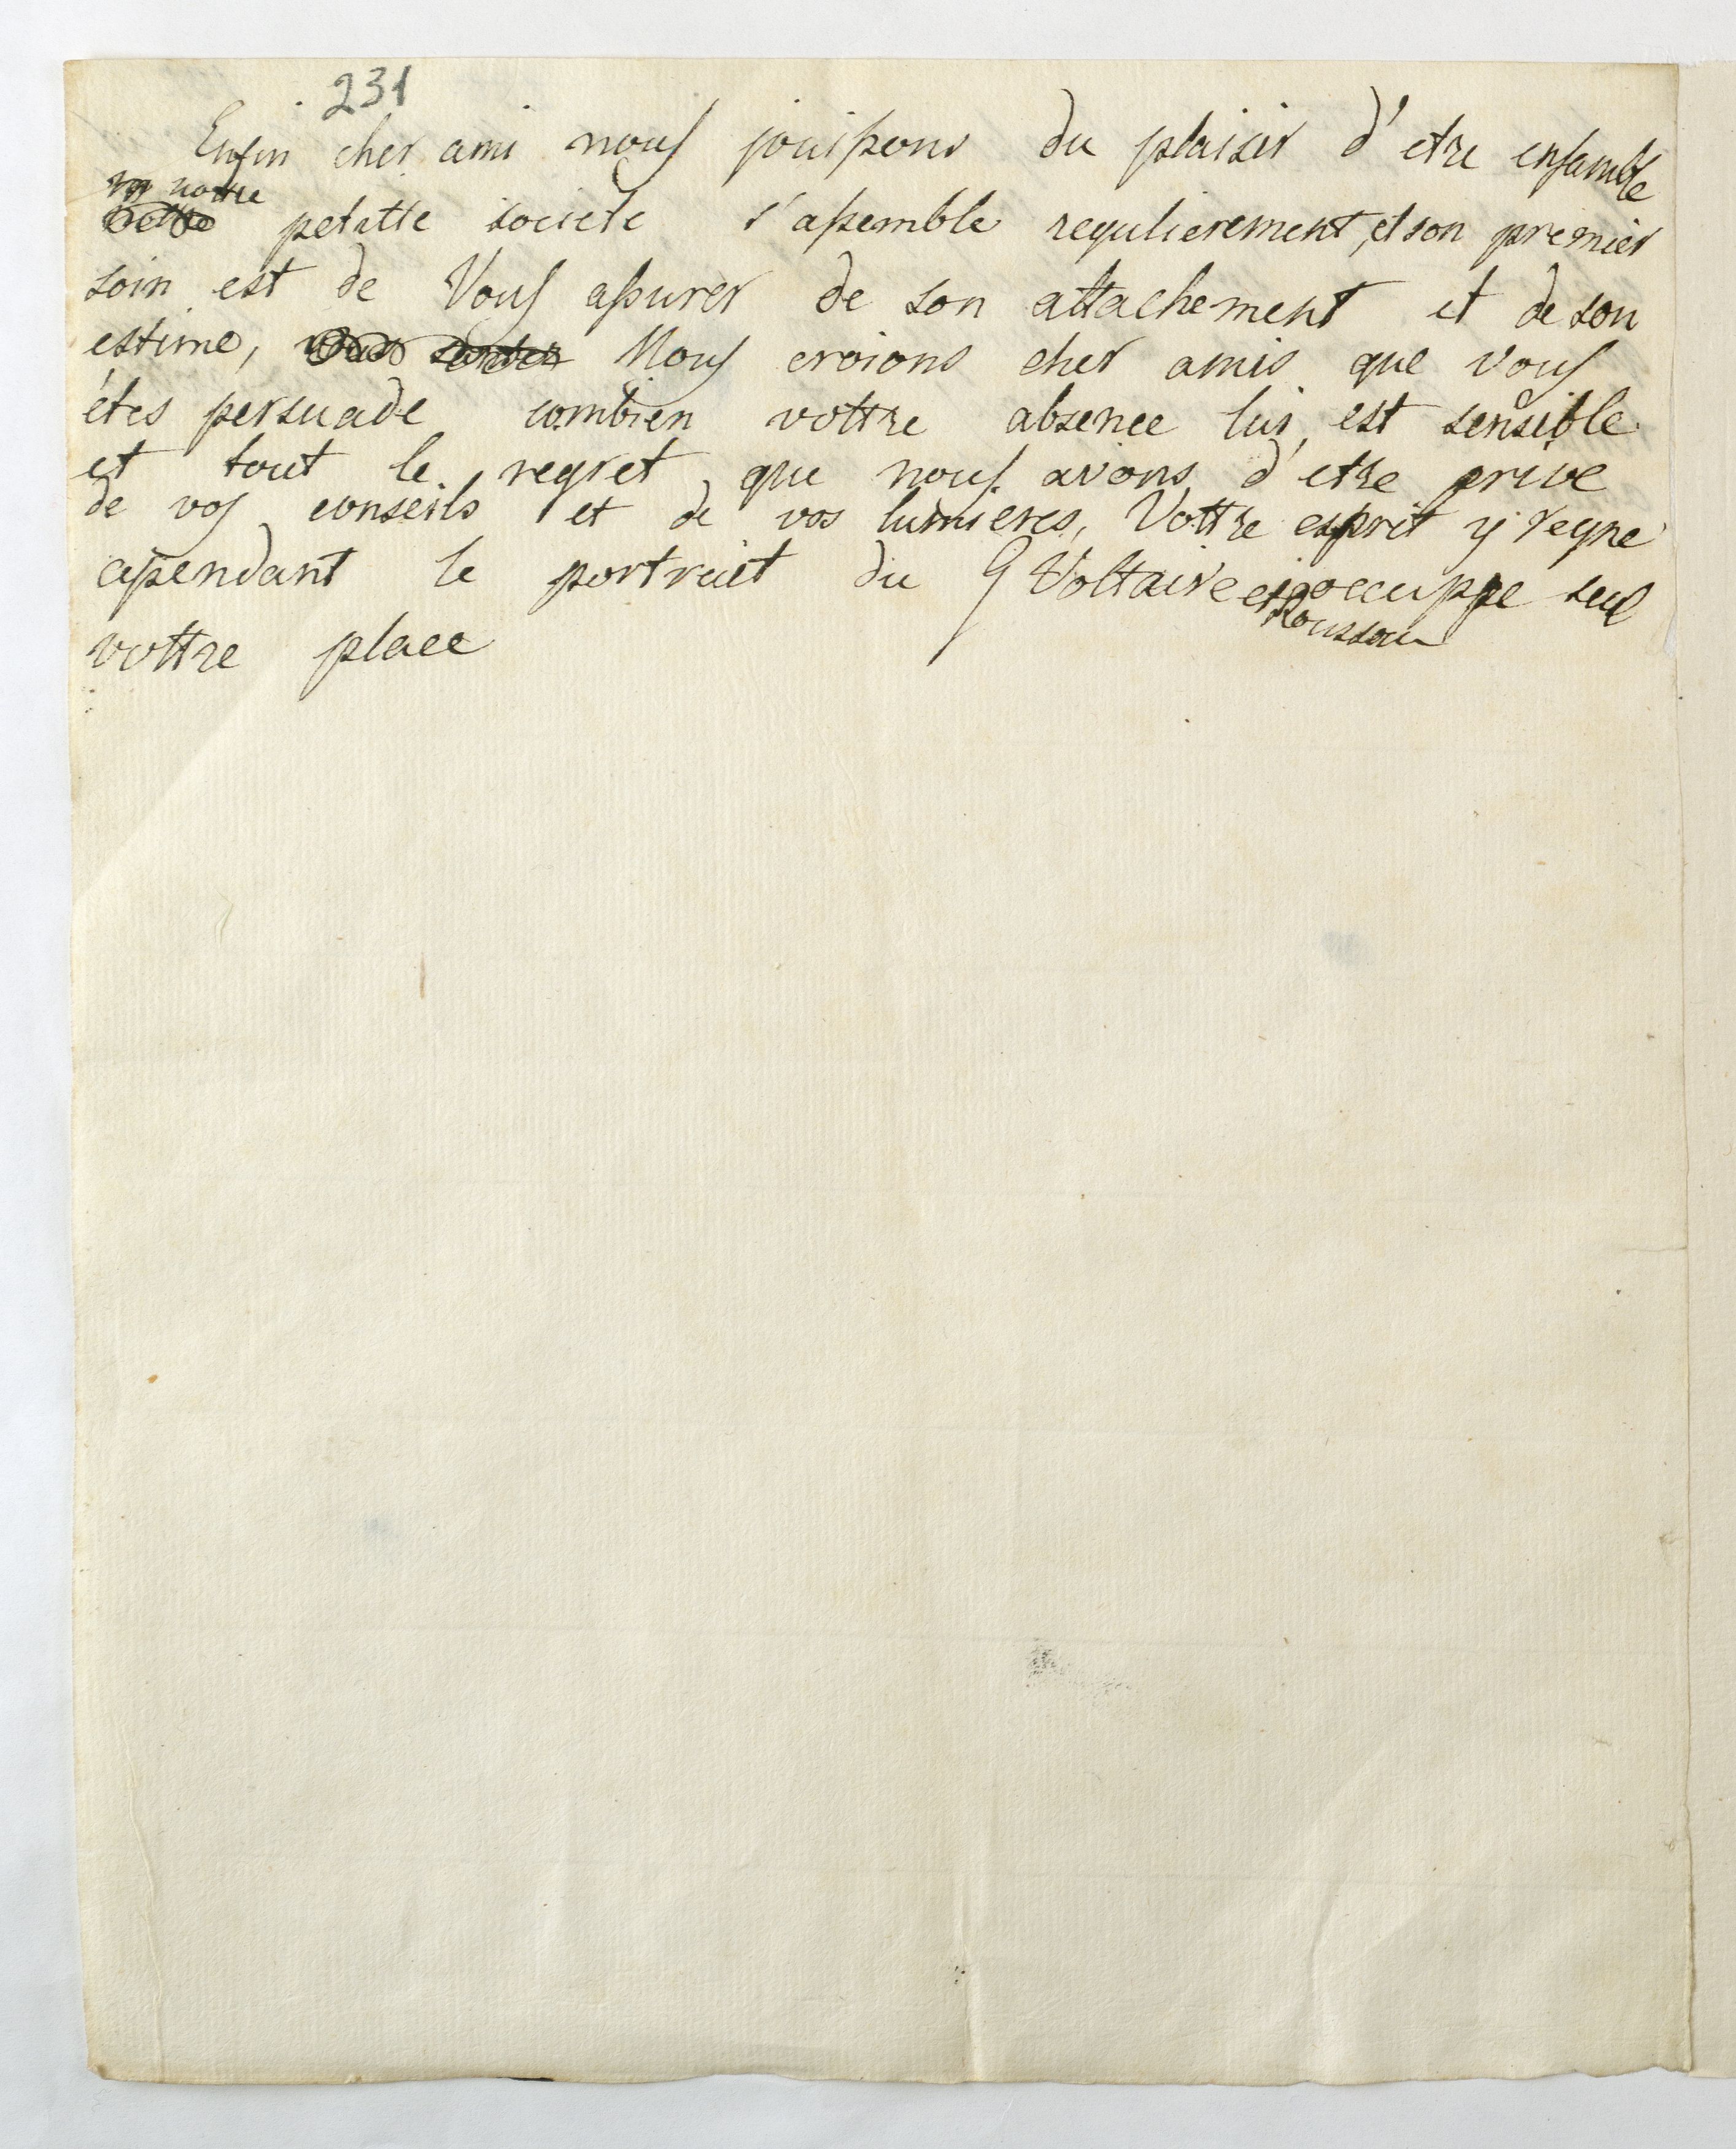 231
Enfin cher ami nous jouissons du plaisir d'etre ensamble
notre
petitte societe s'assemble regulierement, et son premier
soin est de Vous assurer de son attachement et de son
estime, Nous croions cher amis que vous
étes persuade combien vottre absence lui est sensible
et tout le regret que nous avons d'etre privé
de vos conseils et de vos lumieres, Vottre esprit y regne
cependant le portrait du G Voltaire et occuppe seul
Roussau
vottre place